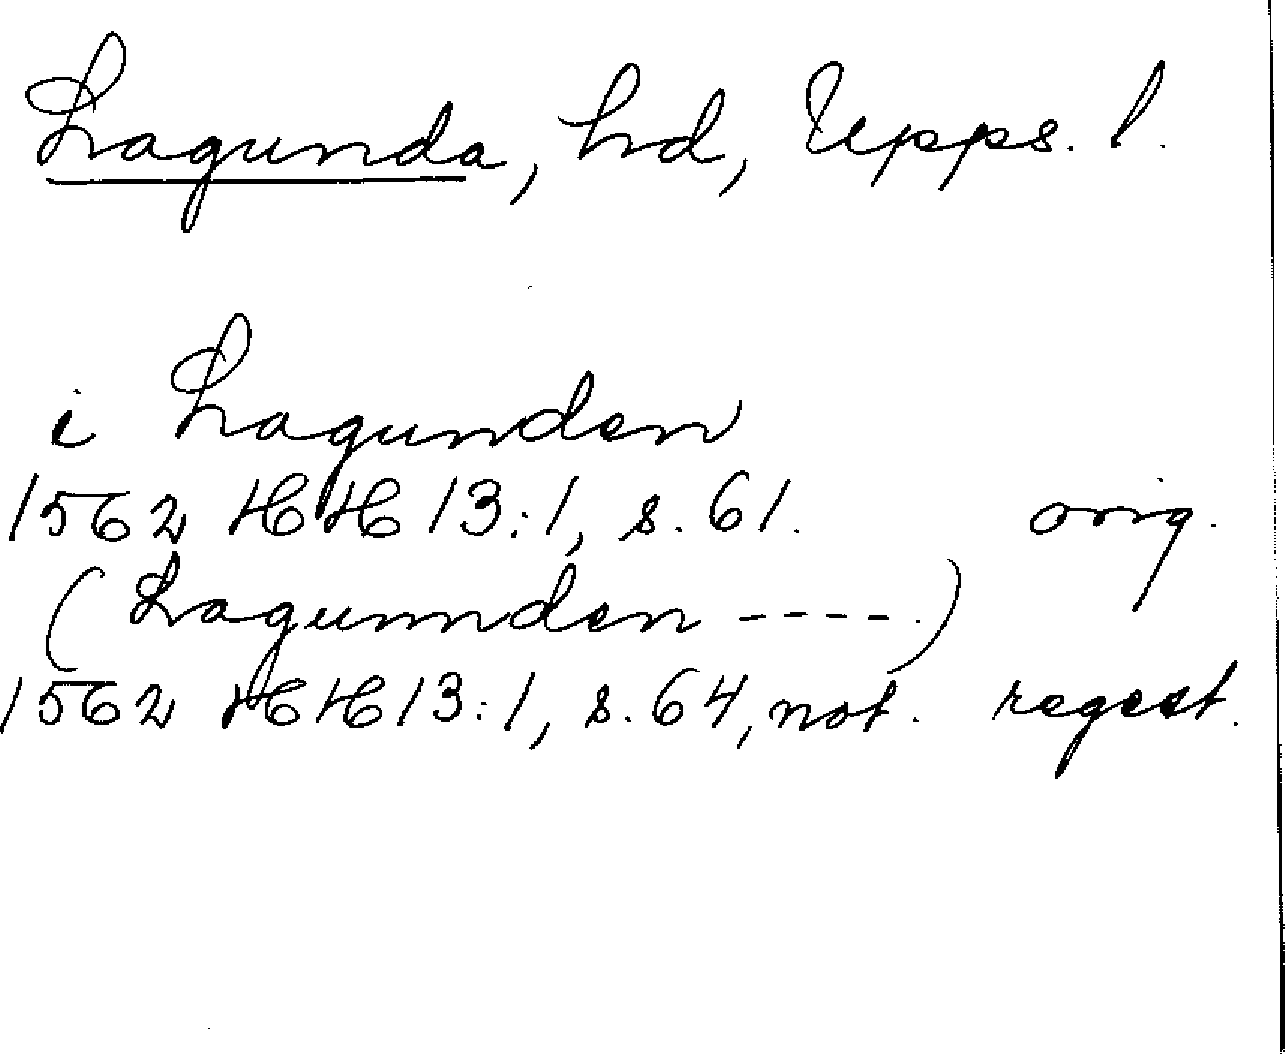 Lagunda, hd, Upps. l.
i Lagunden
1562 HH 13:1, s. 61. orig.
(Lagunnden ----.)
1562 HH 13:1, s. 64, not. regest.